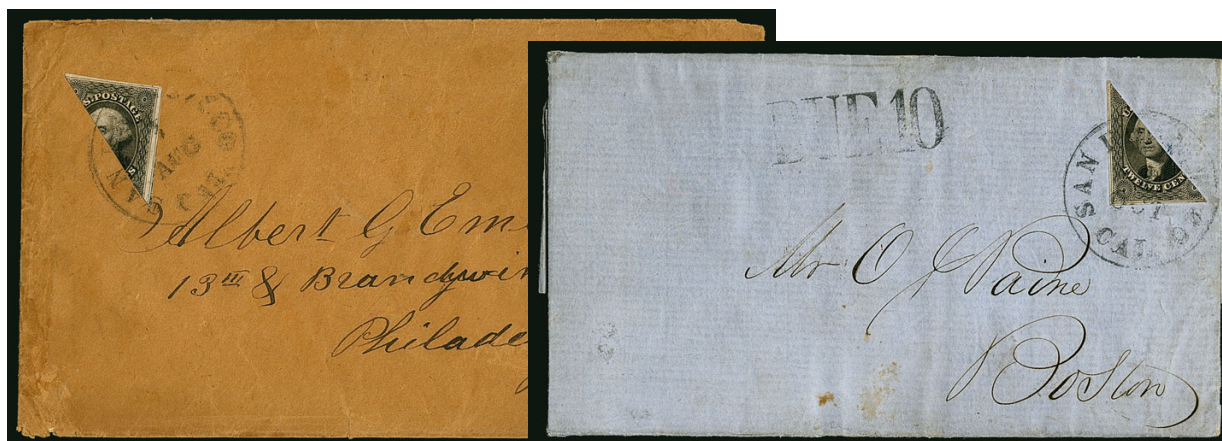 S. POSTAGE
AUG
SAN
CAL
Albert G Em
13th & Brandywin
Philade
DUE 10
TWELVE CEN
SAN
OCT
CAL
Mr O J Paine
Boston